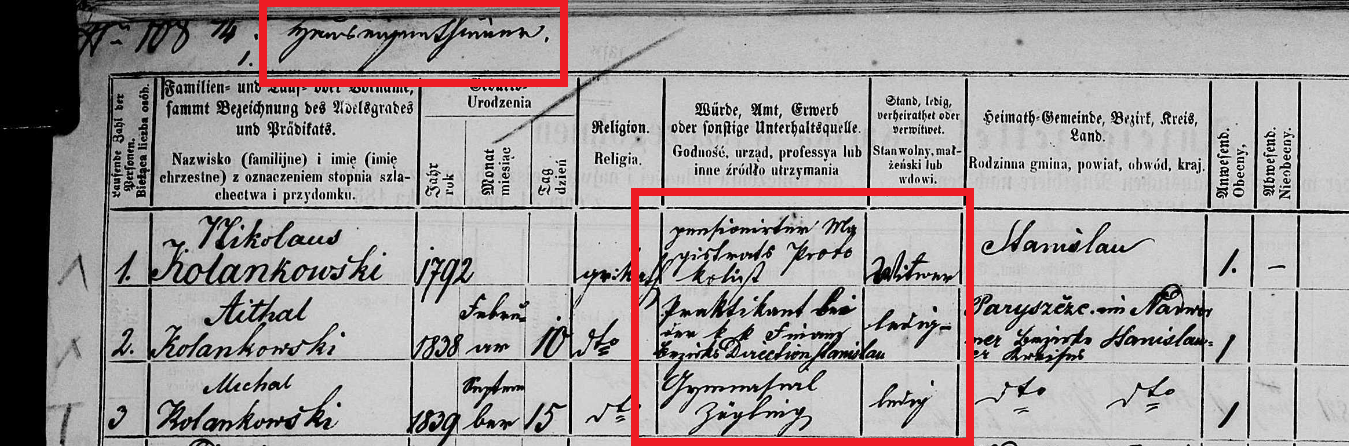 Nro 108 74. Hauseigenthümer.
1.
Laufende Zahl der Personen.
Bieżąca liczba osób.
Familien- und Tauf- oder Vorname,
sammt Bezeichnung des Adelsgrades
und Prädikats.
Nazwisko (familijne) i imię (imię
chrzestne) z oznaczeniem stopnia szla-
chectwa i przydomku.
Urodzenia
Jahr
rok
Monat
miesiąc
Tag
dzień
Religion.
Religia.
Würde, Amt, Erwerb
oder sonstige Unterhaltsquelle.
Godność, urząd, professya lub
inne źródło utrzymania
Stand, ledig,
verheirathet oder
verwitwet.
Stan wolny, mał-
żeński lub
wdowi.
Heimath-Gemeinde, Bezirk, Kreis,
Land.
Rodzinna gmina, powiat, obwód, kraj.
Anwesend.
Obecny.
Abwesend.
Nieobecny.
1. Nikolaus
Kolankowski
1792
grkath
pensionirter Ma
gistrats Proto
kolist
Witwer
Stanislau
1. –
2. Aithal
Kolankowski
1838
Febru
ar
10
dto
Praktikant bei
der k k Finanz
Bezirks Direction Stanislau
ledig
Paryszcze im Nadwor
ner Bezirke Stanislau-
er Kreises
1
3 Michal
Kolankowski
1839
Septem
ber
15
dto
Gymnasial
Zögling
ledig
dto dto
1